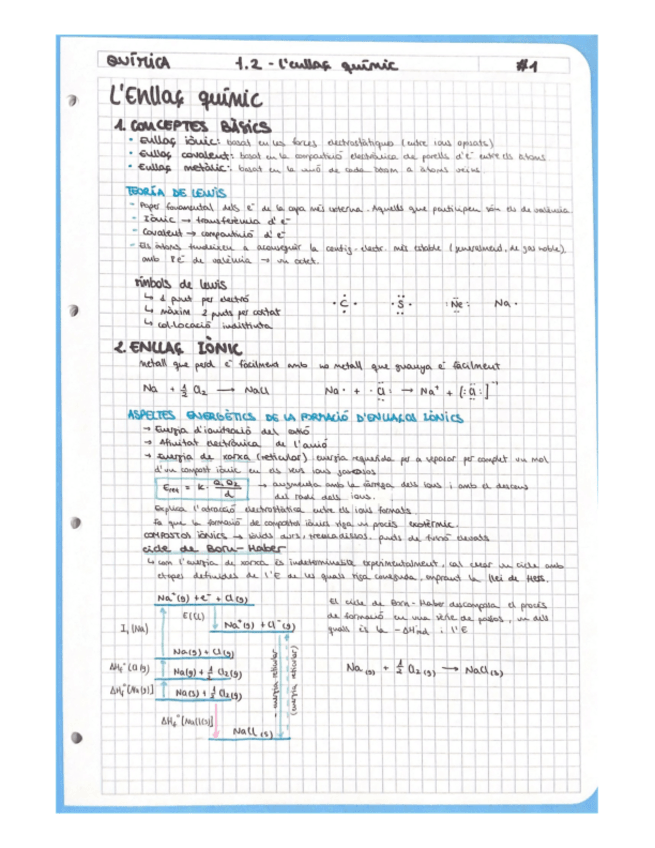 QUÍMICA 1.2 - L'enllaç químic #1
L'Enllaç químic
1. CONCEPTES BÀSICS
• Enllaç iònic: basat en les forces electrostàtiques (entre ions oposats)
• Enllaç covalent: basat en la compartició electrònica de parells d'e⁻ entre els àtoms
• Enllaç metàl·lic: basat en la unió de cada àtom a àtoms veïns
TEORÍA DE LEWIS
- Paper fonamental dels e⁻ de la capa més externa. Aquells que participen són els de valència.
- Iònic → transferència d'e⁻
- Covalent → compartició d'e⁻
- Els àtoms tendeixen a aconseguir la config. electr. més estable (generalment, de gas noble),
amb 8e⁻ de valència → un octet.
símbols de Lewis
↳ 1 punt per electró
↳ màxim 2 punts per costat
↳ col·locació indistinta
C S Ne Na ·
2. ENLLAÇ IÒNIC
Metall que perd e⁻ fàcilment amb no metall que guanya e⁻ fàcilment
Na + 1/2 Cl₂ → NaCl Na · + · Cl : → Na⁺ + [: Cl :]⁻
ASPECTES ENERGÈTICS DE LA FORMACIÓ D'ENLLAÇOS IÒNICS
→ Energia d'ionització del catió
→ Afinitat electrònica de l'anió
→ Energia de xarxa (reticular) energia requerida per a separar per complet un mol
d'un compost iònic en els seus ions gasosos
E = k · Q₁Q₂ / d → augmenta amb la càrrega dels ions i amb el descens
del radi dels ions.
Explica l'atracció electrostàtica entre els ions formats
Fa que la formació de compostos iònics siga un procés exotèrmic.
COMPOSTOS IÒNICS → sòlids durs, trencadissos, punts de fusió elevats
cicle de Born-Haber
↳ com l'energia de xarxa és indeterminable experimentalment, cal crear un cicle amb
etapes definides de l'E de les quals siga coneguda, emprant la llei de Hess.
Na⁺(g) + e⁻ + Cl(g)
E(Cl)
I₁(Na)
Na⁺(g) + Cl⁻(g)
Na(g) + Cl(g)
ΔHf°(Cl(g)
Na(g) + 1/2 Cl₂(g)
ΔHf°[Na(g)]
Na(s) + 1/2 Cl₂(g)
ΔHf°[NaCl(s)]
NaCl(s)
- energia reticular
(energia reticular)
El cicle de Born-Haber descompon el procés
de formació en una sèrie de passos, un dels
quals és la -ΔH i l'E
Na(g) + 1/2 Cl₂(g) → NaCl(s)